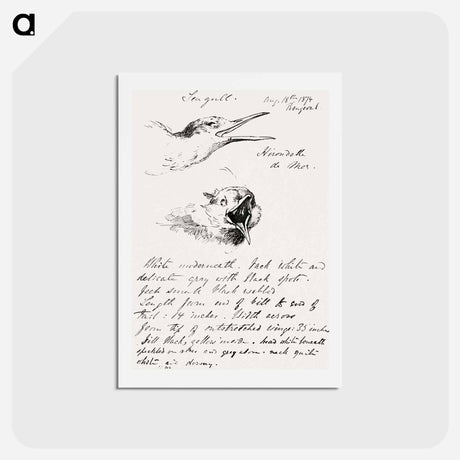 a.
Seagull. Aug. 18th 1874
Hirondelle
de Mer.
White underneath. Back white and
delicate gray with black spots.
Feet small black webbed
Length from end of bill to end of
tail: 14 inches. Width across
from tip of outstretched wings: 33 inches
Bill black, yellow inside. head white beneath
speckled on sides and gray above. neck quite
white and downy.